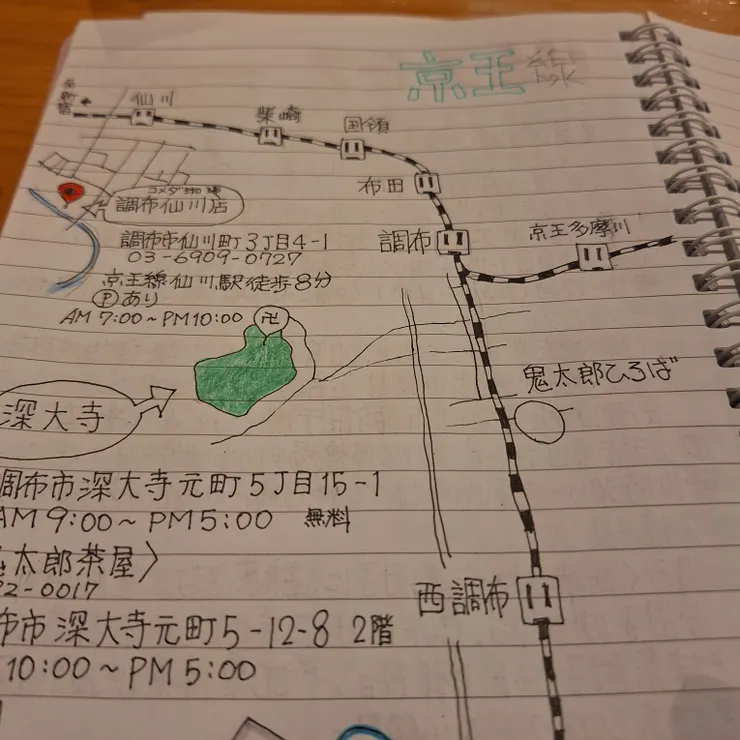 京王線
至新宿
仙川
柴崎
国領
布田
調布
京王多摩川
コメダ珈琲
調布仙川店
調布市仙川町3丁目4-1
03-6909-0727
京王線仙川駅徒歩8分
Ⓟあり
AM 7:00~PM10:00
卍
深大寺
鬼太郎ひろば
調布市深大寺元町5丁目15-1
AM9:00~PM5:00 無料
太郎茶屋〉
2-0017
布市深大寺元町5-12-8 2階
10:00~PM5:00
西調布